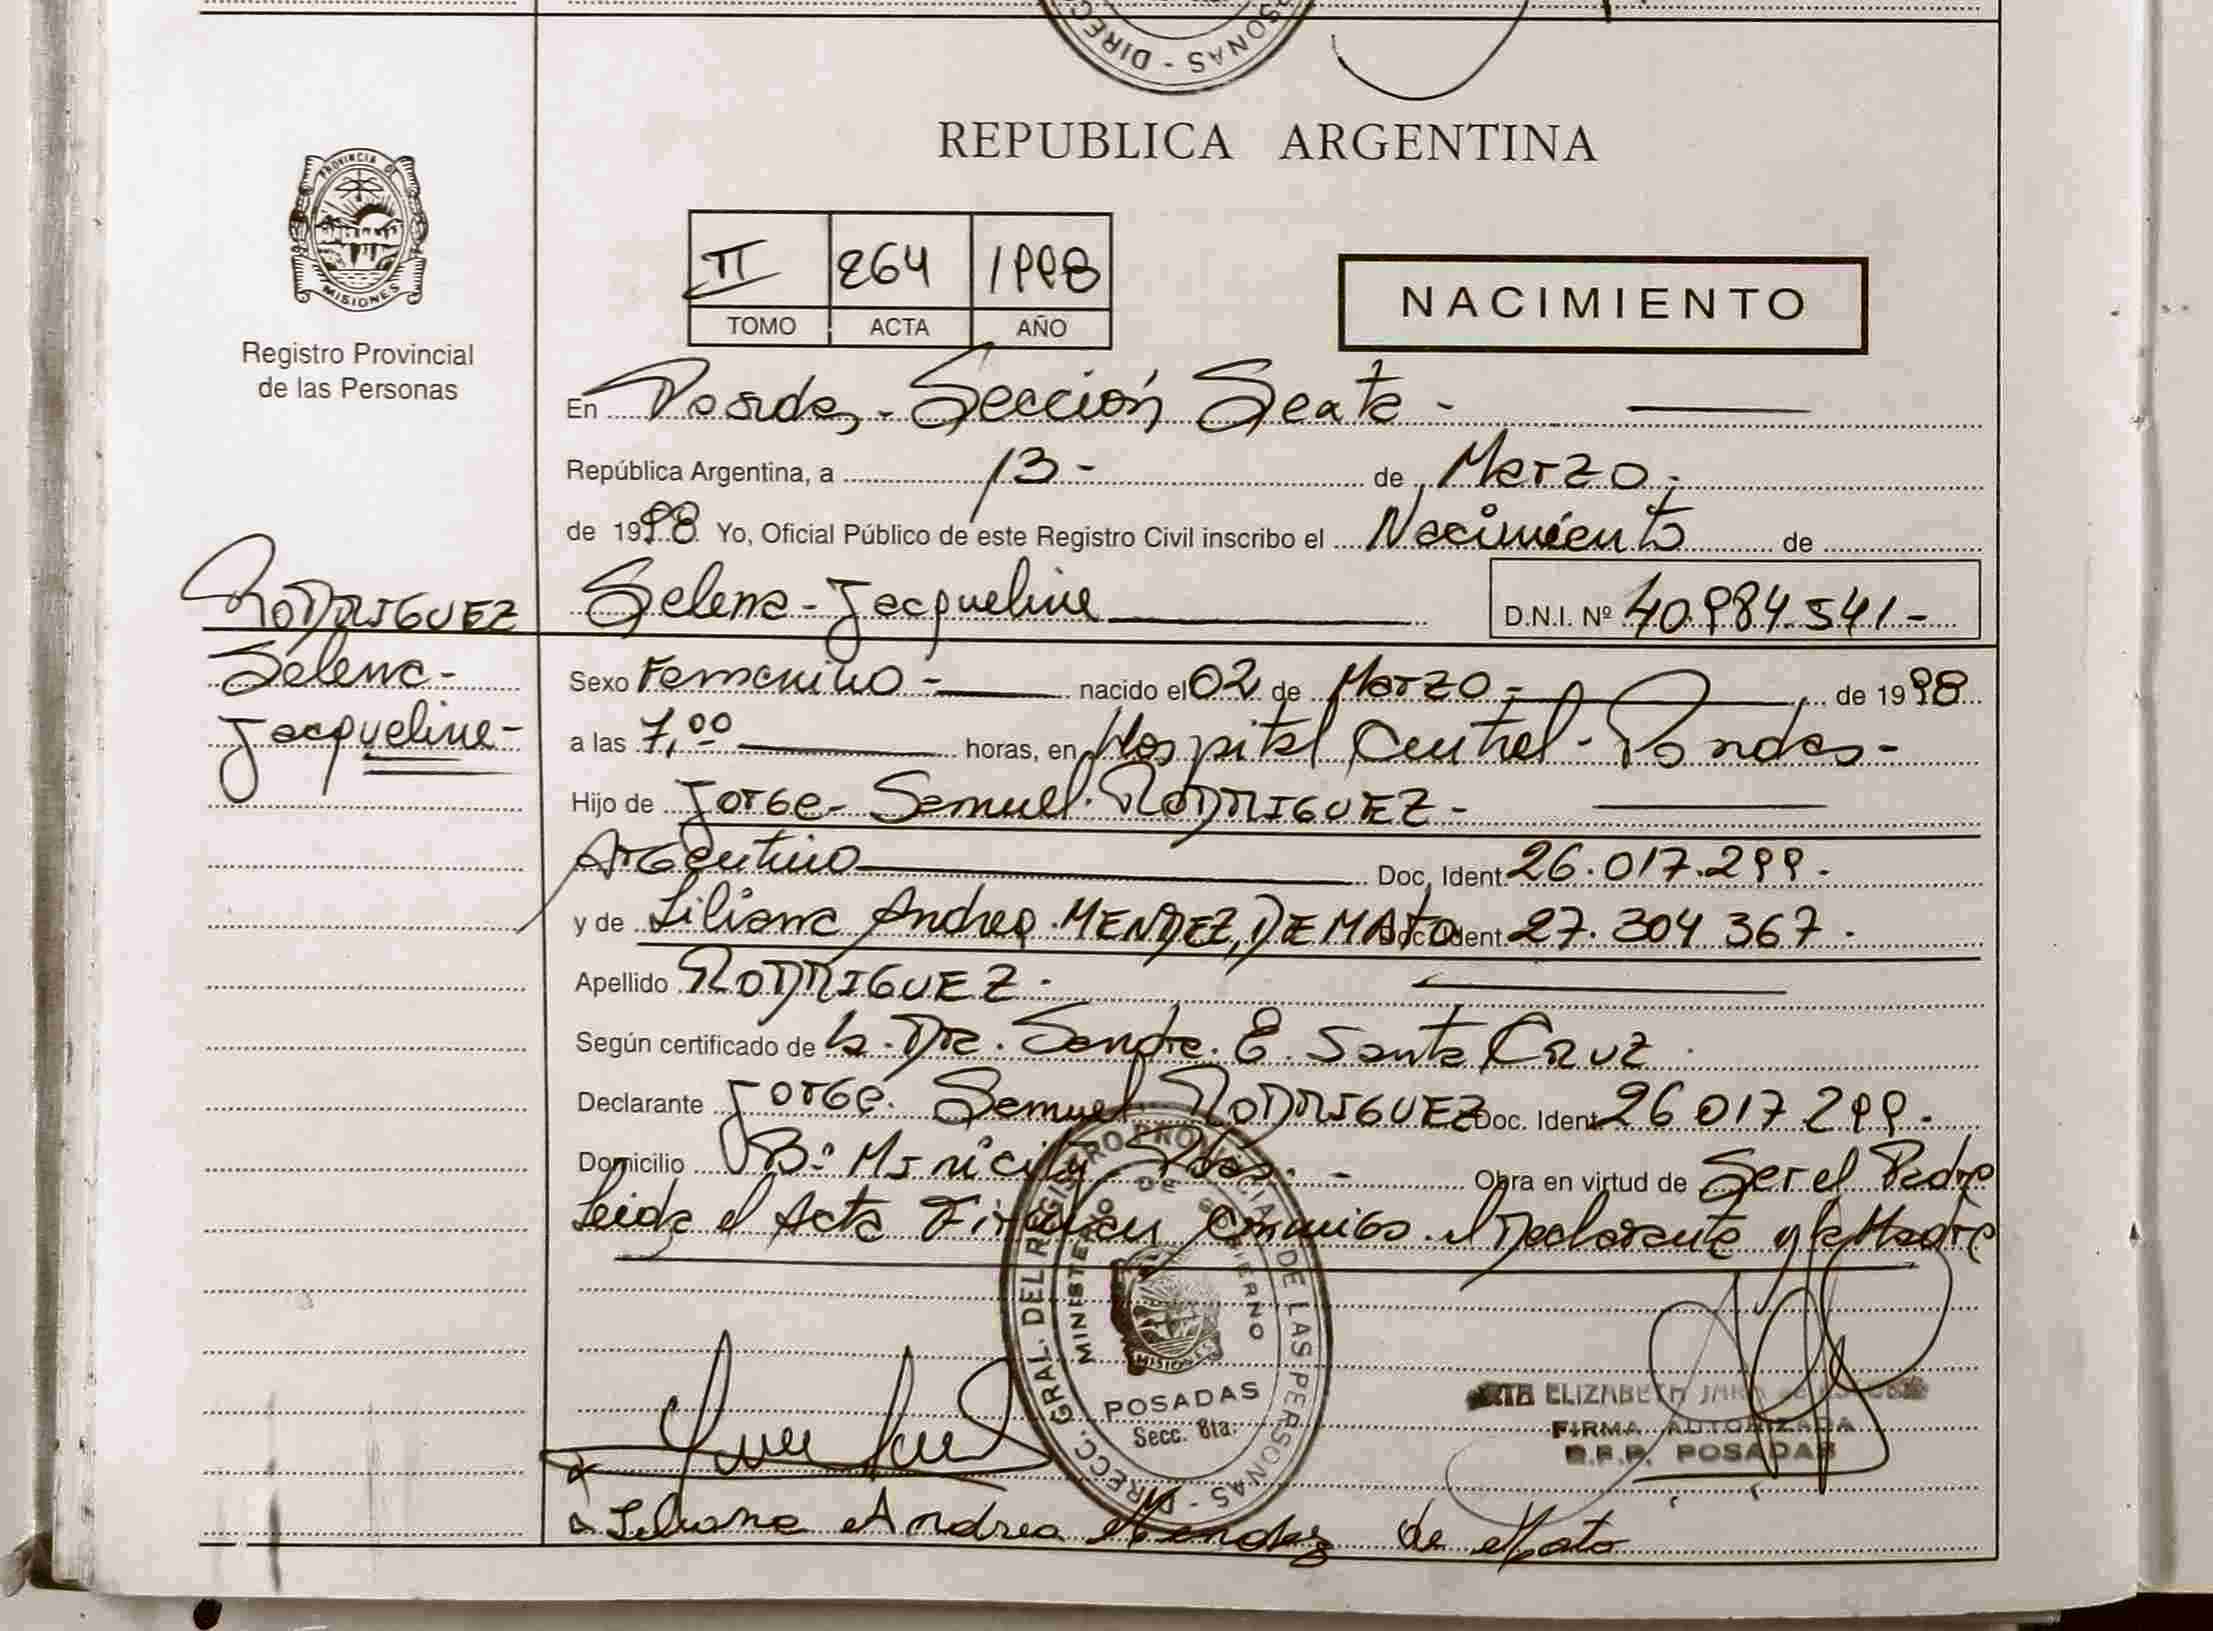 REPUBLICA ARGENTINA
PROVINCIA DE
MISIONES
Registro Provincial
de las Personas
II 264 1998
TOMO ACTA AÑO
NACIMIENTO
En Posadas, - Sección Sexta -
República Argentina, a 13 - de Marzo -
de 1998 Yo, Oficial Público de este Registro Civil inscribo el Nacimiento de
RODRIGUEZ
Selena -
Jacqueline -
Selena - Jacqueline D.N.I. Nº 40.984.541 -
Sexo Femenino - nacido el 02 de Marzo - de 1998
a las 7,00 horas, en Hospital Central - Posadas -
Hijo de Jorge - Samuel RODRIGUEZ -
Argentino Doc. Ident. 26.017.299.
y de Liliana Andrea MENDEZ, DE MATO Doc. Ident. 27.304 367.
Apellido RODRIGUEZ.
Según certificado de la Dra. Sandra E. Santa Cruz.
Declarante Jorge Samuel RODRIGUEZ Doc. Ident. 26 017 299.
Domicilio Bº Pdas. - Obra en virtud de Ser el Padre
Leida el Acta Firman Conmigo el Declarante y la Madre
DIRECC. GRAL. DEL REGISTRO PROVINCIAL DE LAS PERSONAS
MINISTERIO DE GOBIERNO
MISIONES
POSADAS
Secc. 6ta.
ELIZABETH JARA
FIRMA AUTORIZADA
R.P.P. POSADAS
Liliana Andrea Mendez de Mato